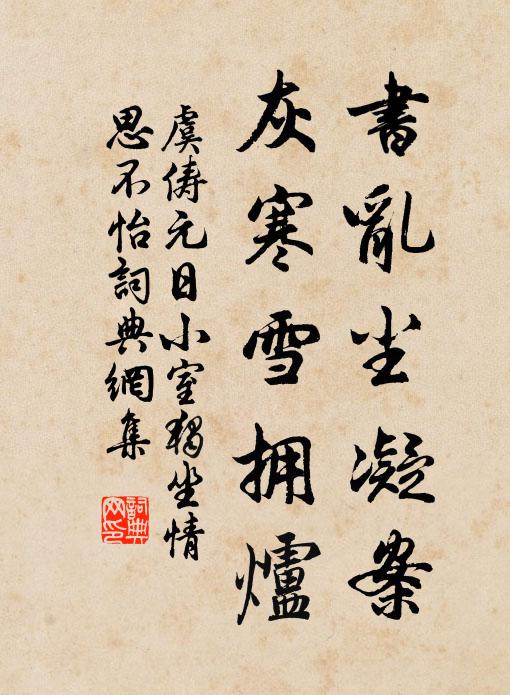 書亂尘凝案
灰寒雪拥爐
虞儔元日小室獨坐情
思不怡詞典網集
詞典
网印